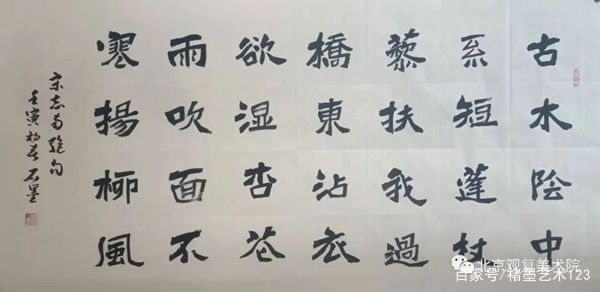 古木陰中
系短蓬杖
藜扶我過
橋東沾衣
欲湿杏花
雨吹面不
寒揚柳風
宋志南絕句
壬寅初春 石墨
北京观复美术院
百家号/楮墨艺术123